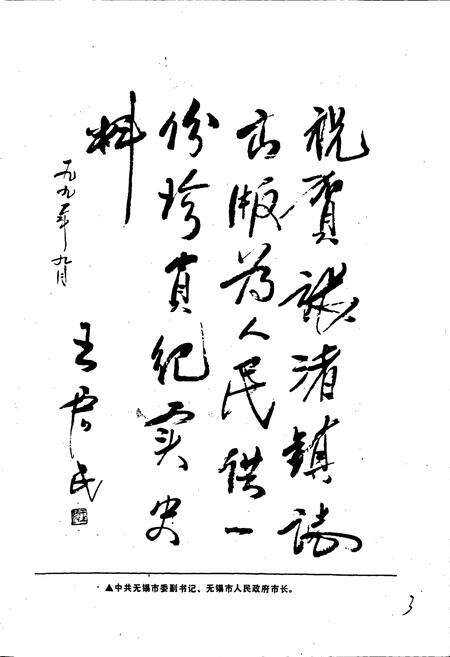 祝贺张渚镇志
出版为人民供一
份珍贵纪实史
料
一九九一年九月
王宏民
▲中共无锡市委副书记、无锡市人民政府市长。
3